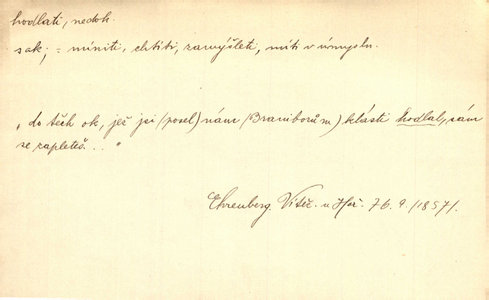 hodlati, nedok.
sak; = míniti, chtíti, zamýšleti, míti v úmyslu.
„do těch ok, jež jsi (posel) nám (Braniborům) klásti hodlal, sám
se zapleteš..."
Ehrenberg. Vítěz. u Hoř. 76. 9. (1857).